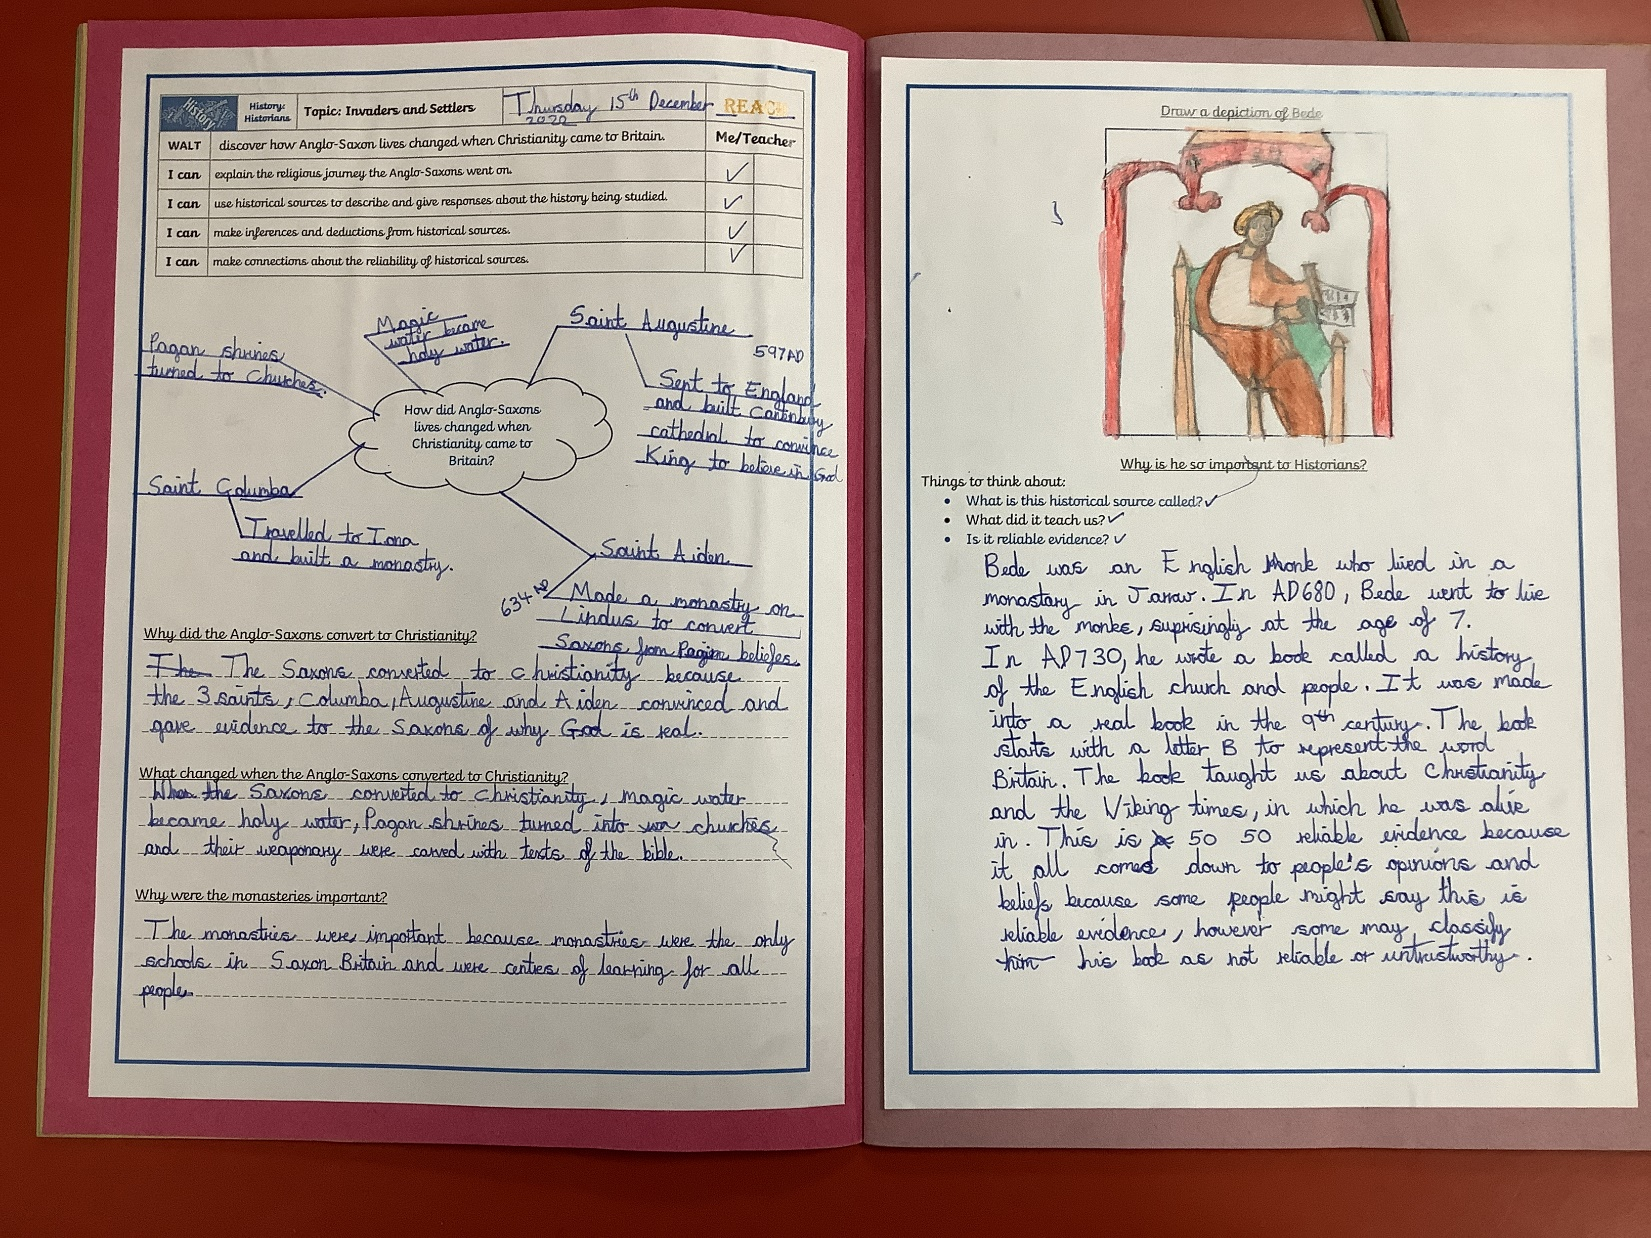 History
History:
Historians
Topic: Invaders and Settlers
Thursday 15th December
2022
REACH
WALT discover how Anglo-Saxon lives changed when Christianity came to Britain. Me/Teacher
I can explain the religious journey the Anglo-Saxons went on. ✓
I can use historical sources to describe and give responses about the history being studied. ✓
I can make inferences and deductions from historical sources. ✓
I can make connections about the reliability of historical sources. ✓
Magic
water became
holy water.
Saint Augustine
597AD
Pagan shrines
turned to Churches.
Sent to England
and built Cantnbury
cathedral to convince
King to believe in God
How did Anglo-Saxons
lives changed when
Christianity came to
Britain?
Saint Columba
Travelled to Iona
and built a monastry.
Saint Aiden
634 AD
Made a monastry on
Lindus to convert
Saxons from Pagan beliefes.
Why did the Anglo-Saxons convert to Christianity?
The The Saxons converted to christianity because
the 3 saints, Columba, Augustine and Aiden convinced and
gave evidence to the Saxons of why God is real.
What changed when the Anglo-Saxons converted to Christianity?
When the Saxons converted to christianity, magic water
became holy water, Pagan shrines turned into churches
and their weaponary were carved with texts of the bible.
Why were the monasteries important?
The monastries were important because monastries were the only
schools in Saxon Britain and were centres of learning for all
people.
Draw a depiction of Bede
Why is he so important to Historians?
Things to think about:
• What is this historical source called? ✓
• What did it teach us? ✓
• Is it reliable evidence? ✓
Bede was an English Monk who lived in a
monastary in Jarrow. In AD680, Bede went to live
with the monks, suprisingly at the age of 7.
In AD730, he wrote a book called a history
of the English church and people. It was made
into a real book in the 9th century. The book
starts with a letter B to represent the word
Britain. The book taught us about Christianity
and the Viking times, in which he was alive
in. This is 50 50 reliable evidence because
it all comes down to people's opinions and
beliefs because some people might say this is
reliable evidence, however some may classify
him his book as not reliable or untrustworthy.